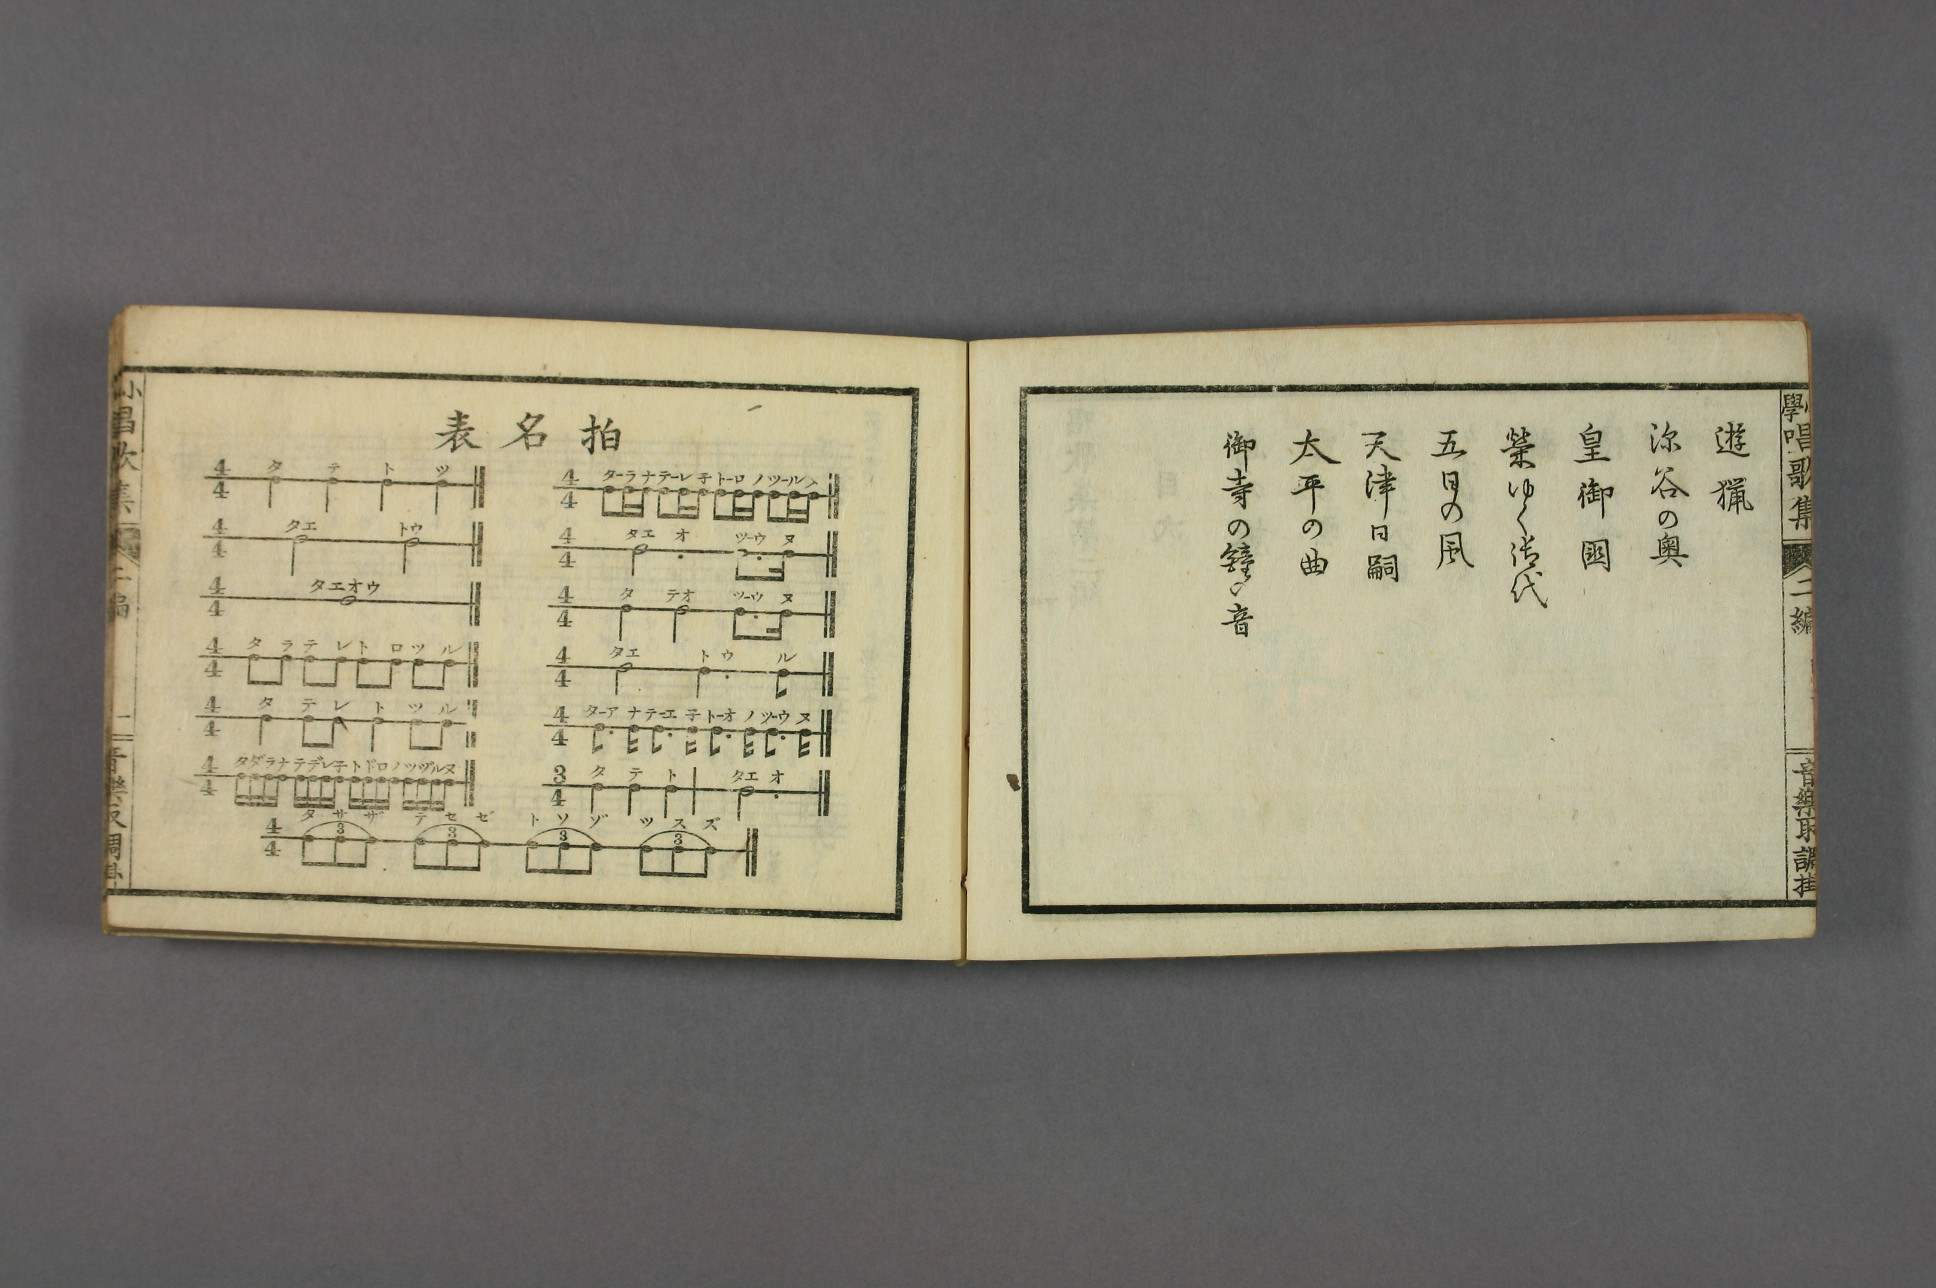 小學唱歌集 二編 音樂取調掛
遊猟
深谷の奥
皇御國
榮ゆく御代
五日の風
天津日嗣
太平の曲
御寺の鐘の音
拍名表
4/4 ターラナ テーレ子 トーロノ ツールヌ
4/4 タエ オ ツーウ ヌ
4/4 タ テオ ツーウ ヌ
4/4 タエ ト ウ ル
4/4 ターア ナ テーエ 子 トーオ ノ ツーウ ヌ
3/4 タ テ ト タエ オ
4/4 タ テ ト ツ
4/4 タエ トウ
4/4 タエオウ
4/4 タ ラ テ レ ト ロ ツ ル
4/4 タ テ レ ト ツ ル
4/4 タダラナ テデレ子 トドロノ ツヅルヌ
4/4 タ サ ザ テ セ ゼ ト ソ ゾ ツ ス ズ
3 3 3 3
小 唱歌集 二編 二 音樂取調掛